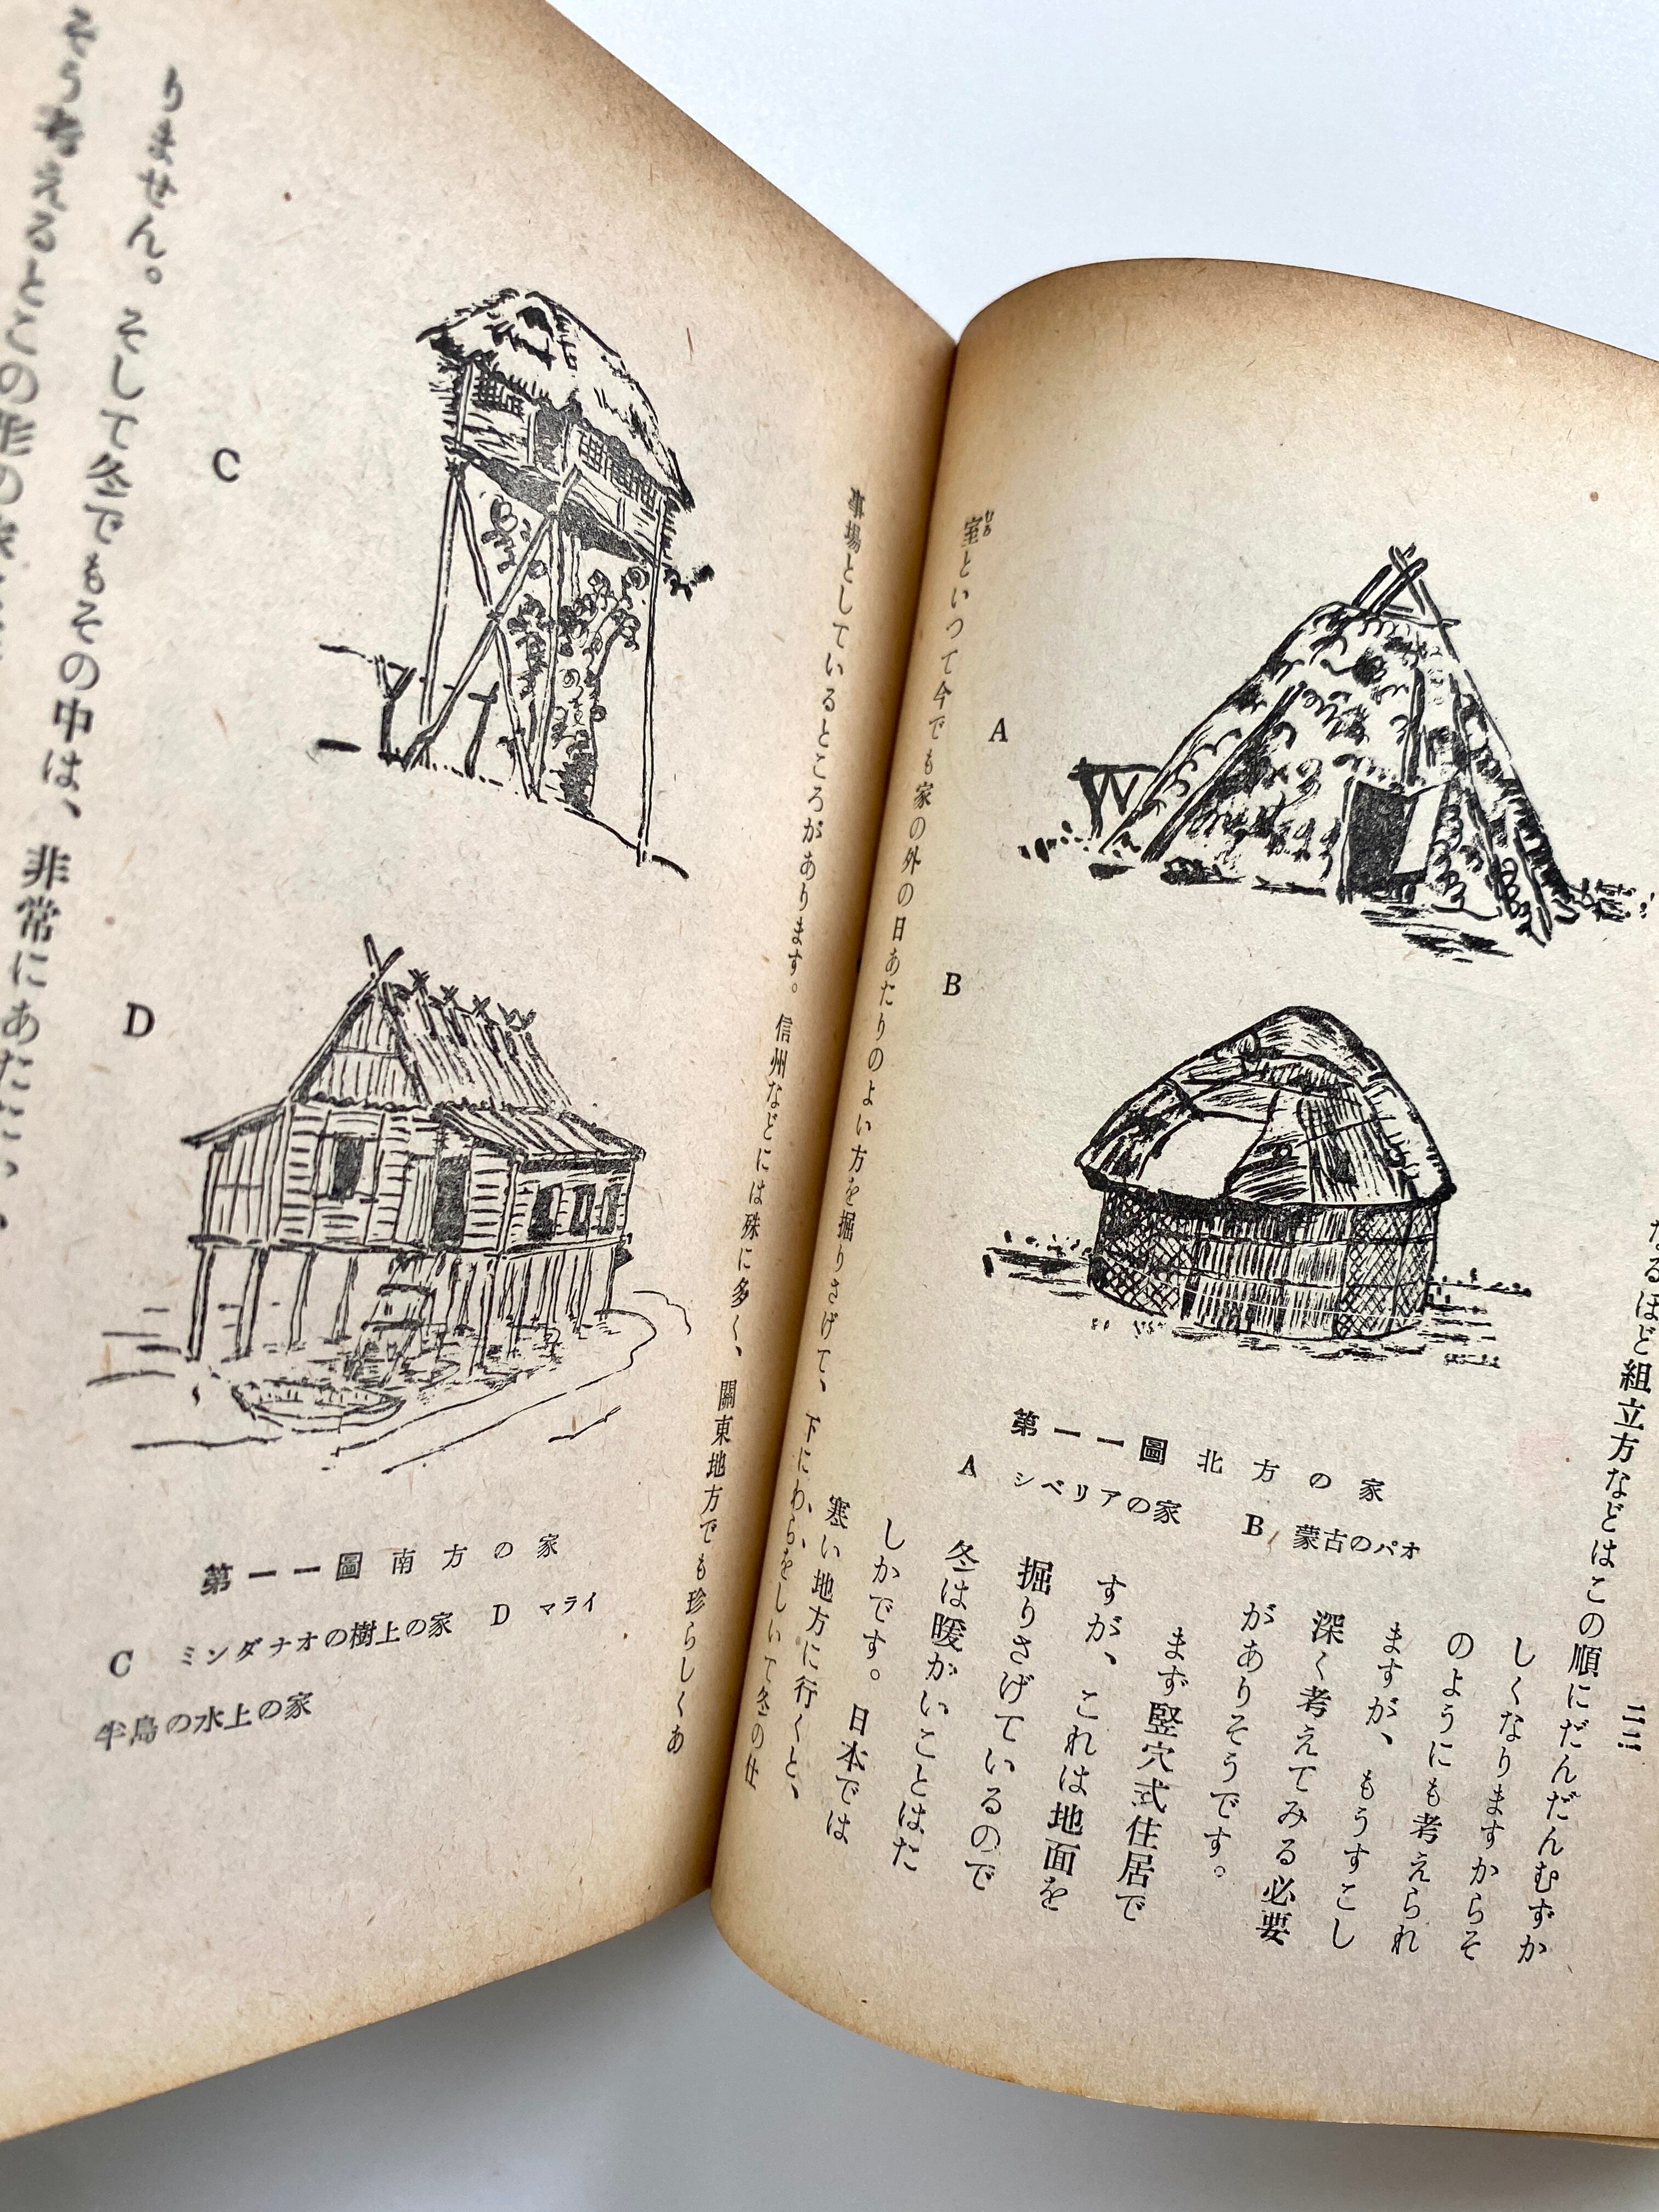 なるほど組立方などはこの順にだんだんむずか
しくなりますからそ
のようにも考えられ
ますが、もうすこし
深く考えてみる必要
がありそうです。
まず竪穴式住居で
すが、これは地面を
掘りさげているので
冬は暖かいことはた
しかです。日本では
寒い地方に行くと、
A
B
第一一圖 北方の家
A シベリアの家 B 蒙古のパオ
室といつて今でも家の外の日あたりのよい方を掘りさげて、下にわらをしいて冬の仕
むろ
事場としているところがあります。信州などには殊に多く、關東地方でも珍らしくあ
C
D
第一一圖 南方の家
C ミンダナオの樹上の家 D マライ
半島の水上の家
りません。そして冬でもその中は、非常にあたた
そう考えるとこの